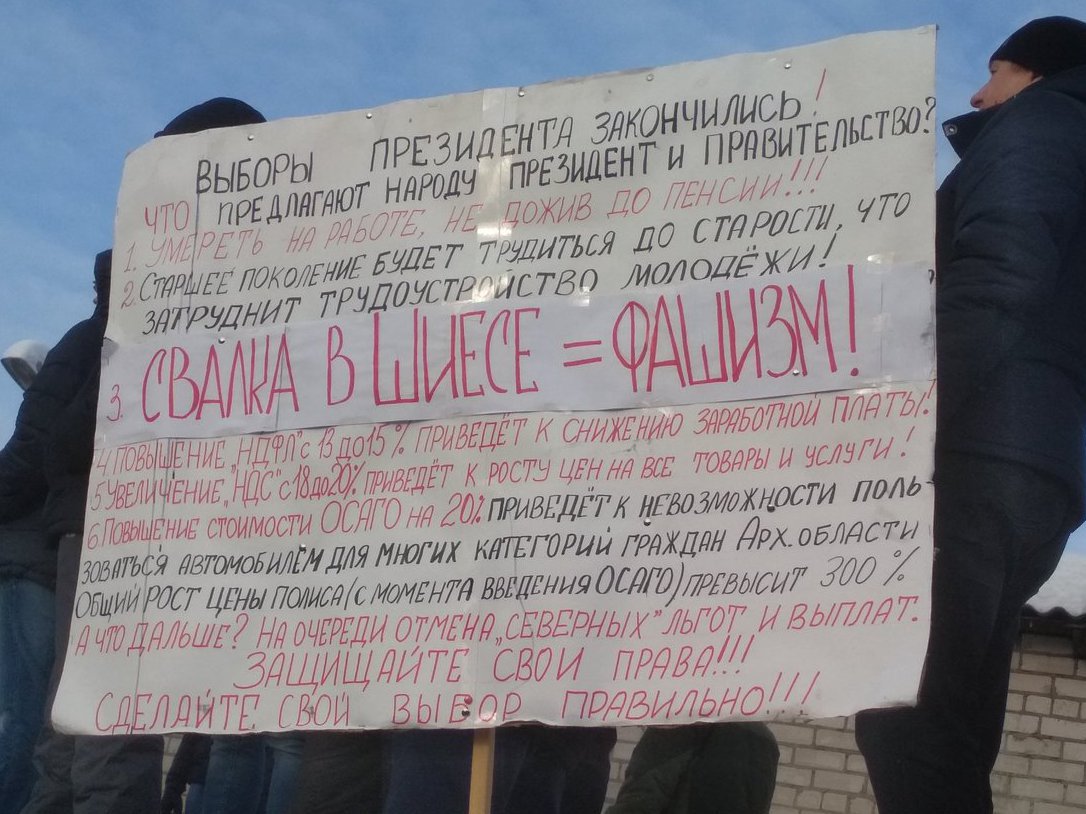 ВЫБОРЫ ПРЕЗИДЕНТА ЗАКОНЧИЛИСЬ!
ЧТО ПРЕДЛАГАЮТ НАРОДУ ПРЕЗИДЕНТ И ПРАВИТЕЛЬСТВО?
1. УМЕРЕТЬ НА РАБОТЕ, НЕ ДОЖИВ ДО ПЕНСИИ!!!
2. СТАРШЕЕ ПОКОЛЕНИЕ БУДЕТ ТРУДИТЬСЯ ДО СТАРОСТИ, ЧТО
ЗАТРУДНИТ ТРУДОУСТРОЙСТВО МОЛОДЁЖИ!
3. СВАЛКА В ШИЕСЕ = ФАШИЗМ!
4 ПОВЫШЕНИЕ „НДФЛ" С 13 ДО 15% ПРИВЕДЁТ К СНИЖЕНИЮ ЗАРАБОТНОЙ ПЛАТЫ!
5 УВЕЛИЧЕНИЕ „НДС" С 18 ДО 20% ПРИВЕДЁТ К РОСТУ ЦЕН НА ВСЕ ТОВАРЫ И УСЛУГИ!
6. ПОВЫШЕНИЕ СТОИМОСТИ ОСАГО НА 20% ПРИВЕДЁТ К НЕВОЗМОЖНОСТИ ПОЛЬ-
ЗОВАТЬСЯ АВТОМОБИЛЕМ ДЛЯ МНОГИХ КАТЕГОРИЙ ГРАЖДАН АРХ. ОБЛАСТИ
ОБЩИЙ РОСТ ЦЕНЫ ПОЛИСА (С МОМЕНТА ВВЕДЕНИЯ ОСАГО) ПРЕВЫСИТ 300 %
А ЧТО ДАЛЬШЕ? НА ОЧЕРЕДИ ОТМЕНА „СЕВЕРНЫХ" ЛЬГОТ И ВЫПЛАТ.
ЗАЩИЩАЙТЕ СВОИ ПРАВА!!!
СДЕЛАЙТЕ СВОЙ ВЫБОР ПРАВИЛЬНО!!!